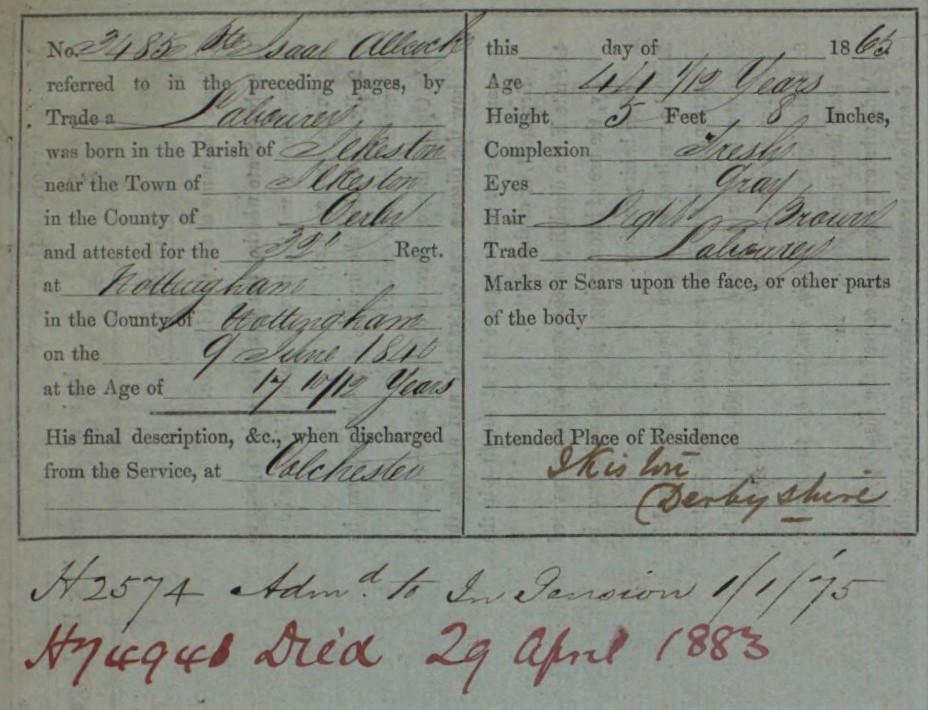 No. 2485 Pte Isaac Allcock
referred to in the preceding pages, by
Trade a Labourer
was born in the Parish of Ilkeston
near the Town of Ilkeston
in the County of Derby
and attested for the 32d Regt.
at Nottingham
in the County of Nottingham
on the 9 June 1840
at the Age of 17 10/12 Years
His final description, &c., when discharged
from the Service, at Colchester
this day of 1865
Age 44 1/12 Years
Height 5 Feet 8 Inches,
Complexion Fresh
Eyes Gray
Hair Light Brown
Trade Labourer
Marks or Scars upon the face, or other parts
of the body
Intended Place of Residence
Ilkiston
Derbyshire
H2574 Admd. to In Pension 1/1/'75
Died 29 April 1883